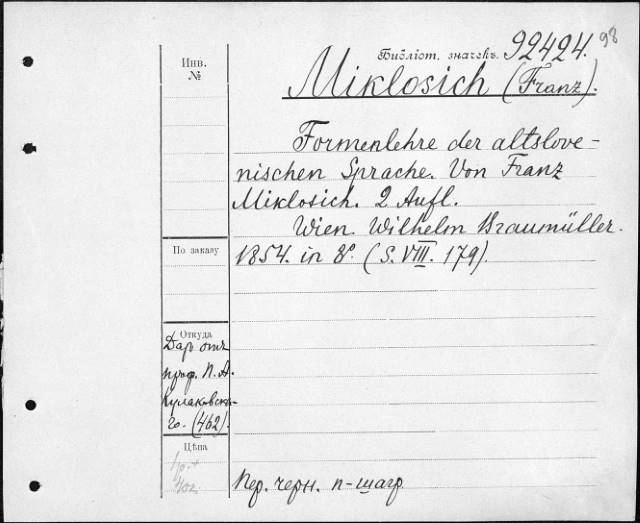 98
Библіот. значекъ 92424.
Инв.
№
Miklosich (Franz).
Formenlehre der altslove-
nischen Sprache. Von Franz
Miklosich. 2 Aufl.
Wien. Wilhelm Braumüller.
По заказу
1854. in 8º. (S. VIII. 179).
Откуда
Даръ отъ
проф. П. А.
Кулаковска-
го. (462).
Цѣна
Пер. черн. п-шагр.